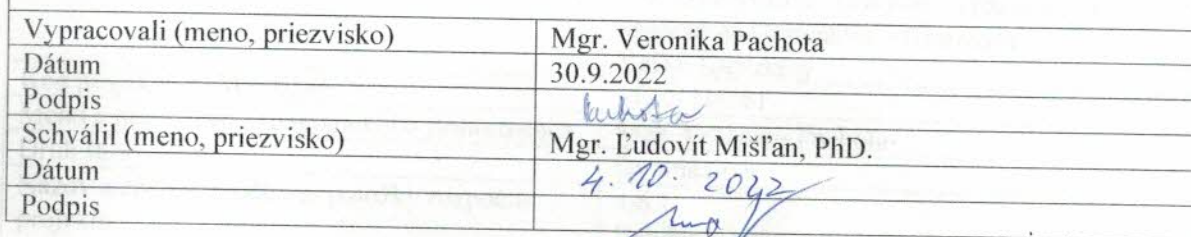 Vypracovali (meno, priezvisko) Mgr. Veronika Pachota
Dátum 30.9.2022
Podpis
Schválil (meno, priezvisko) Mgr. Ľudovít Mišľan, PhD.
Dátum 4. 10. 2022
Podpis